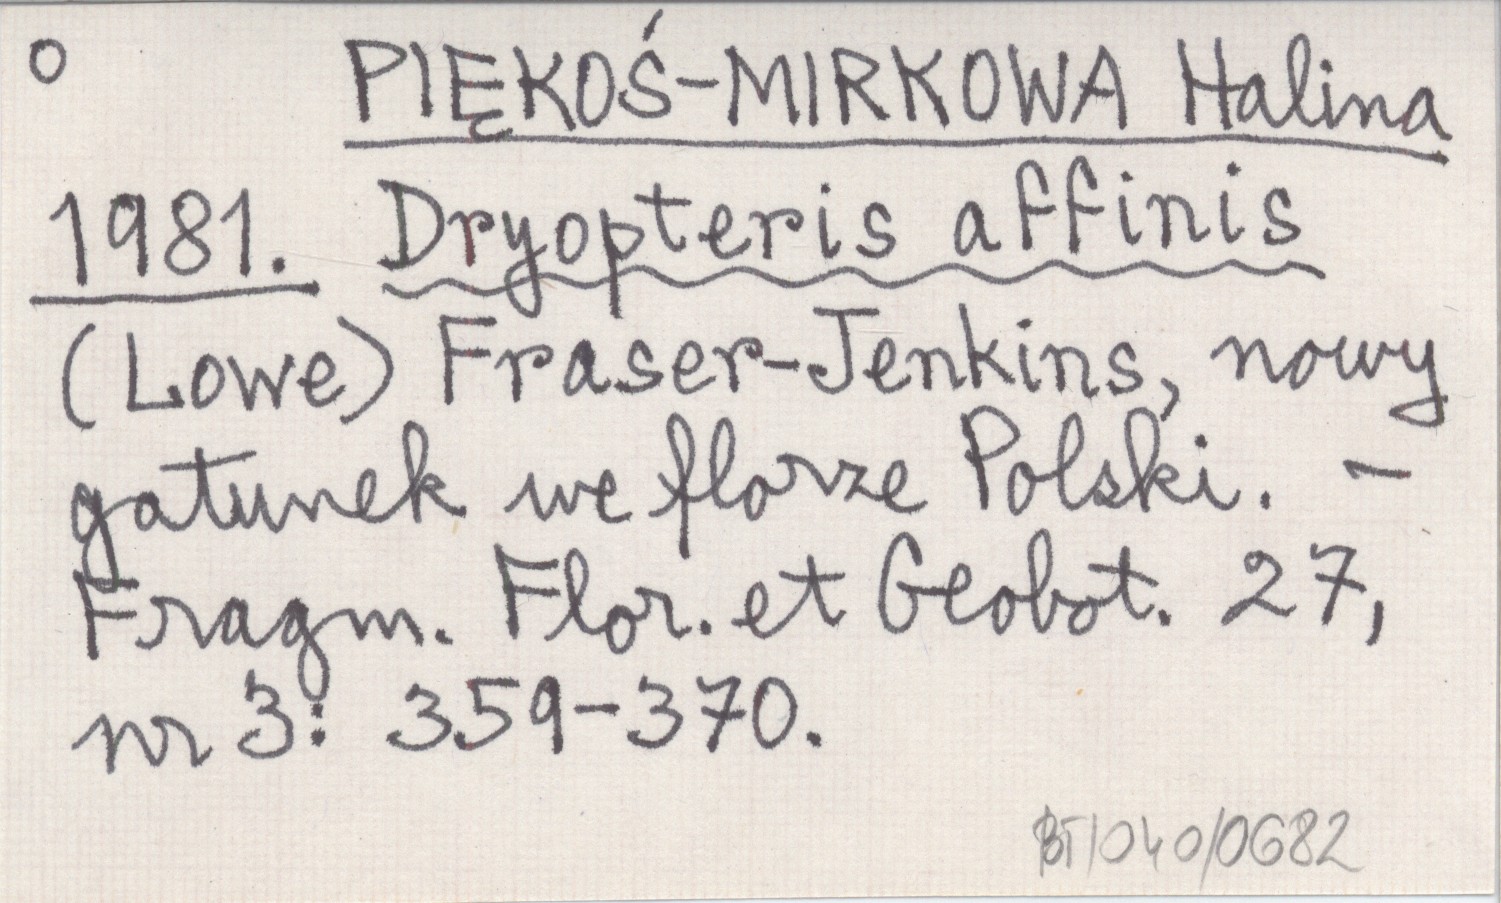 o PIĘKOŚ-MIRKOWA Halina
1981. Dryopteris affinis
(Lowe) Fraser-Jenkins, nowy
gatunek we florze Polski. –
Fragm. Flor. et Geobot. 27,
nr 3: 359-370.
BT/040/0682